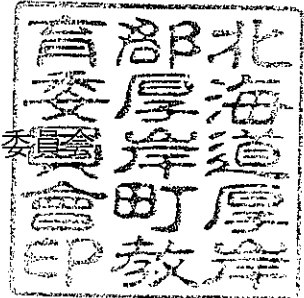 北海道厚岸
郡厚岸町教
育委員會印
委員会